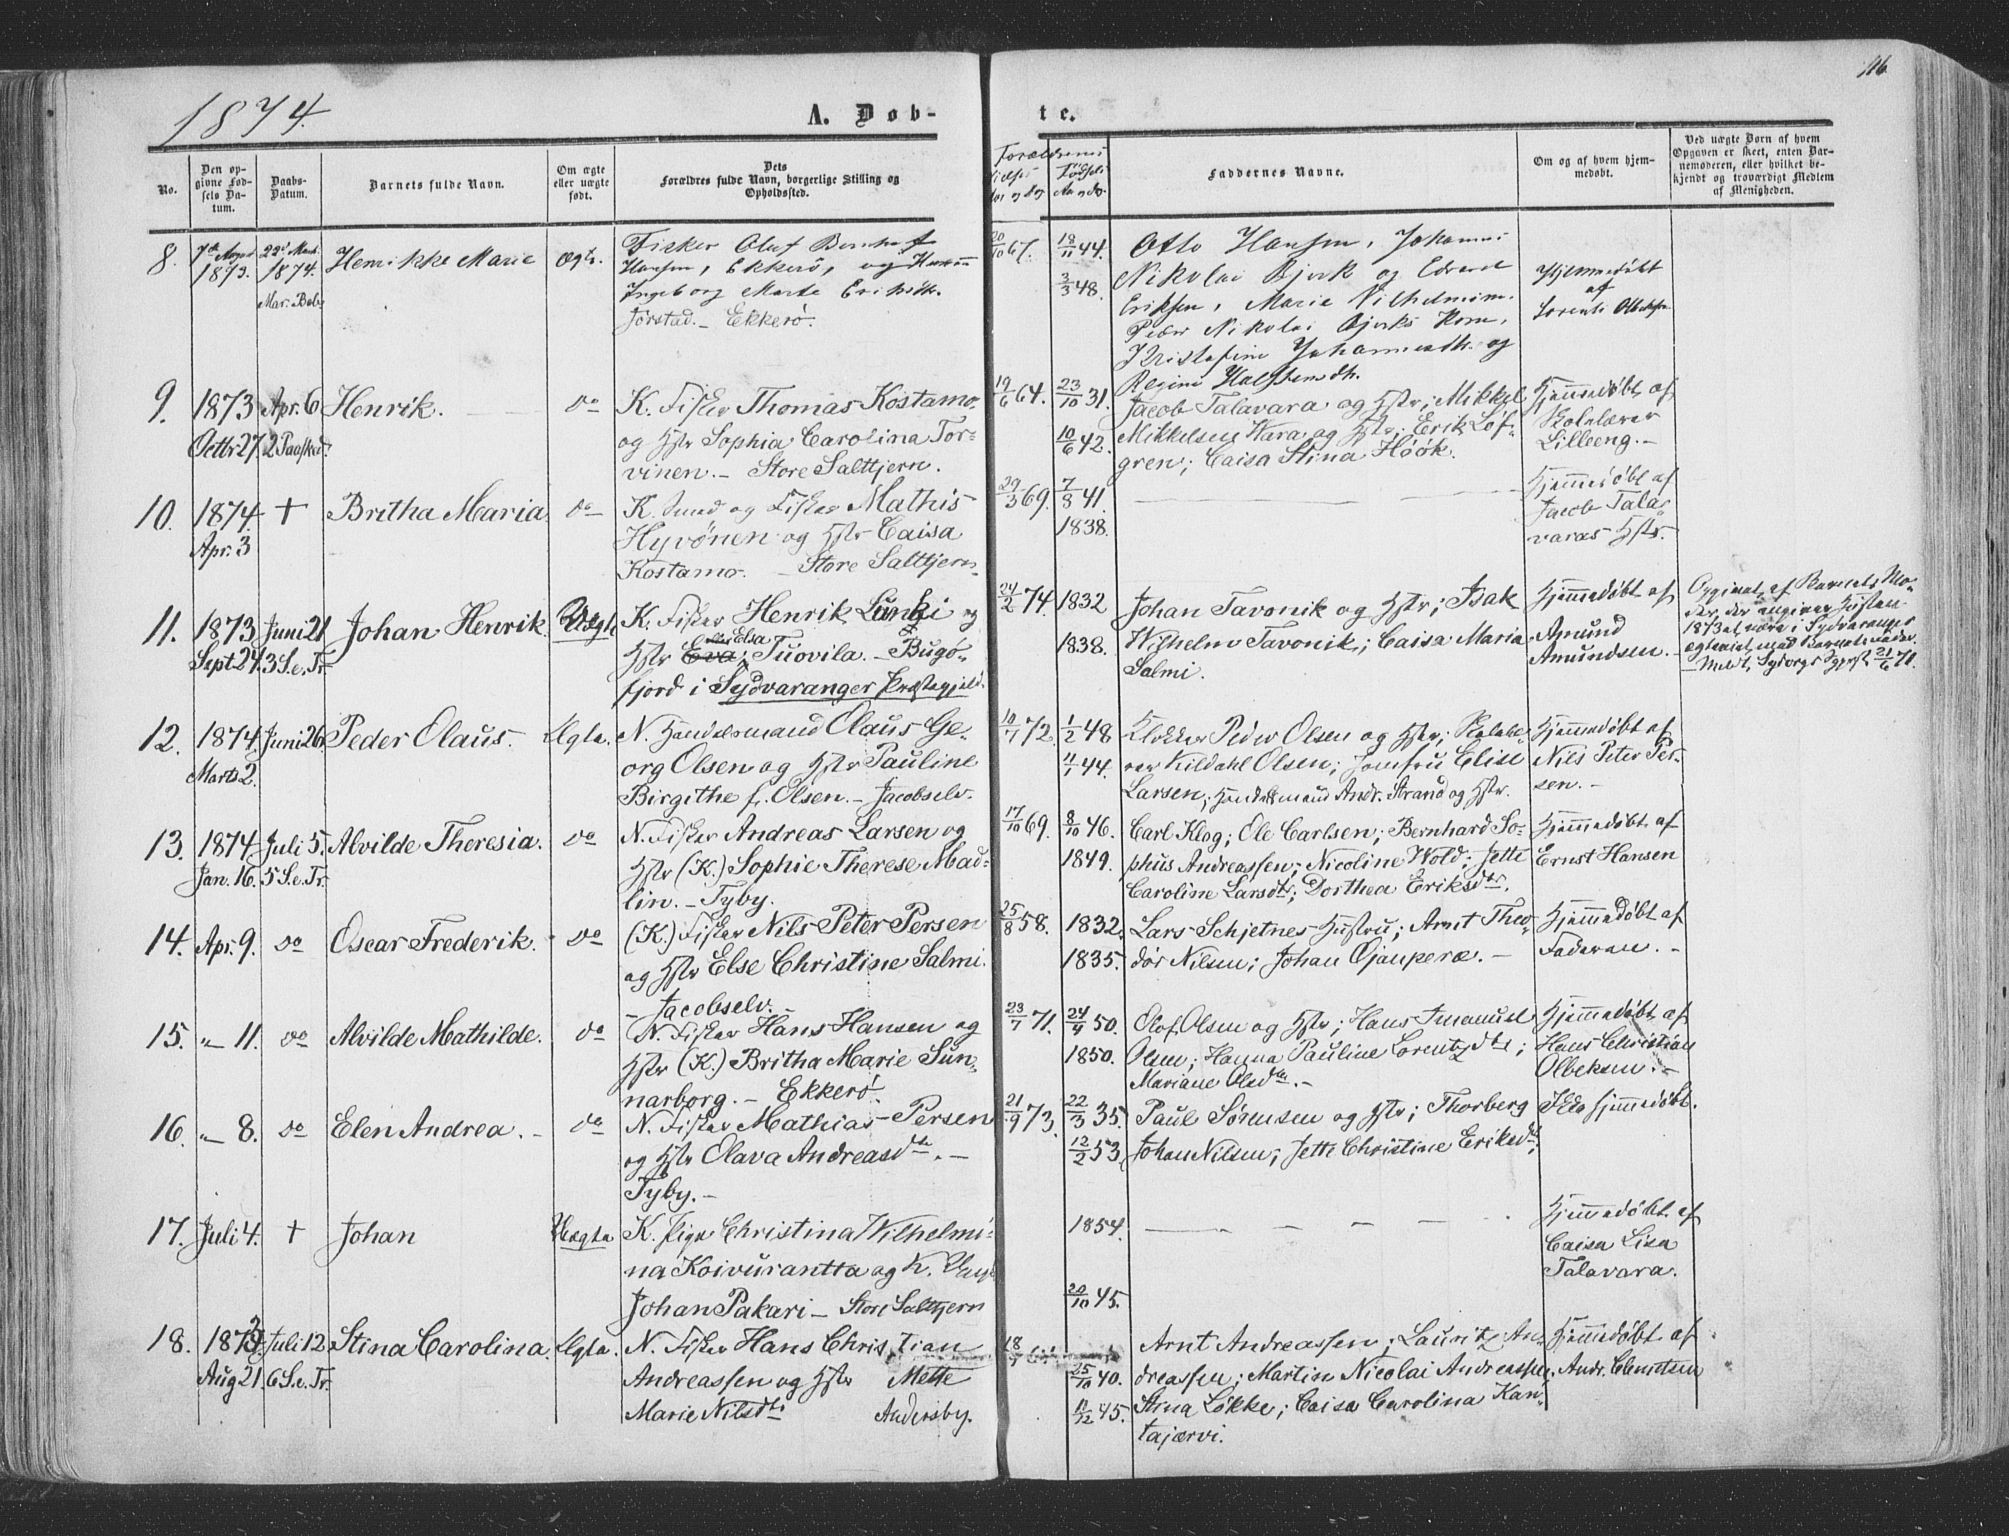 1874.
A. Døb-
te.
116
No.
Den op-
givne Fød-
sels Da-
tum.
Daabs-
Datum.
Barnets fulde Navn.
Om ægte
eller uægte
født.
Dets
Forældres fulde Navn, borgerlige Stilling og
Opholdssted.
Forældrenes
Aar og Dag
Faddernes Navne.
Om og af hvem hjem-
medøbt.
Ved uægte Børn af hvem
Opgaven er skeet, enten Bar-
nemoderen, eller hvilket be-
kjendt og troværdigt Medlem
af Menigheden.
8.
1873.
1874.
Mar. Beb.
Henrikke Marie
Ægte.
Fisker Oluf Bernhof
Hansen, Ekkerø, og Hustru
Ingeborg Marte Eriksdt.
Jørstad. – Ekkerø.
20/10 67.
18/11 44.
3/3 48.
Otto Hansen, Johannes
Nikolai Bjerk og Edvard
Eriksen, Marie Vilhelmine
Peder Nikolai Bjerks Kone,
Kristofine Johannesdtr. og
Regine
Hjemmedøbt
af
Lorents Olbeksen
9.
1873
Octbr 27.
Apr. 6
2 Paaskd.
Henrik.
do
K. Fisker Thomas Kostamo
og Hstr Sophia Carolina Tor-
vinen. – Store Saltjern.
19/6 64.
23/10 31.
10/6 42.
Jacob Talavara og Hstr; Mikkel
Mikkelsen Wara og Hstr; Erik Løf-
gren; Caisa Stina Höök.
Hjemmedøbt af
Skolelærer
Lilleeng. –
10.
1874
Apr. 3
+
Britha Maria
do
K. Smed og Fisker Mathis
Hyvönen og Hstr Caisa
Kostamo. – Store Saltjern
29/3 69.
7/8 41.
1838.
Hjemmedøbt af
Jacob Tala-
varas Hstr.
11.
1873
Sept 24.
Juni 21
3 S. e. Tr.
Johan Henrik
Uægte
K. Fisker Henrik Lunki og
Hstr Eva; Elsa Tuovila. – Bugø-
fjord i Sydvaranger Præstegjeld.
24/2 74.
1832
1838.
Johan Tavonik og Hstr; Isak
Wilhelm Tavonik; Caisa Maria
Salmi.
Hjemmedøbt af
Amund
Amundsen. –
Opgivet af Barnets Mo-
der, der angiver Høsten
1873 at være i Sydvaranger
ægteviet med Barnets Fader.
12.
1874.
Marts 2.
Juni 26
Peder Olaus.
Ægte.
N. Handelsmand Olaus Ge-
org Olsen og Hstr Pauline
Birgithe f. Olsen. – Jacobselv.
10/7 72.
1/2 48
11/1 44.
Klokker Peder Olsen og Hstr; Skolelæ-
rer Kildahl Olsen; Jomfru Elise
Larsen; Handelsmand Andr. Strand og Hstr.
Hjemmedøbt af
Nils Peter Per-
sen. –
13.
1874
Jan. 16.
Juli 5.
5 S. e. Tr.
Alvilde Theresia.
do
N. Fisker Andreas Larsen og
Hstr (K.) Sophie Therese Mad-
lin. – Tyby.
17/10 69.
8/10 46.
1849.
Carl Klog; Ole Carlsen; Bernhard So-
phus Andreassen; Nicoline Wold; Jette
Caroline Larsdtr; Dorthea Eriksdtr.
Hjemmedøbt af
Ernst Hansen
14.
Apr. 9.
do
Oscar Frederik.
do
(K.) Fisker Nils Peter Persen
og Hstr Else Christine Salmi.
– Jacobselv. –
25/8 58.
1832.
1835.
Lars Schjetnes Hustru; Arnt Theo-
dor Nilsen; Johan Ojanperæ. –
Hjemmedøbt af
Faderen. –
15.
„ 11.
do
Alvilde Mathilde.
do
N. Fisker Hans Hansen og
Hstr (K.) Britha Marie Sun-
narborg. – Ekkerø.
23/7 71.
24/9 50.
1850.
Olof Olsen og Hstr; Hans Imanuel
Olsen; Hanna Pauline Lorentzdtr;
Mariane Olsdtr. –
Hjemmedøbt af
Hans Christian
Olbeksen. –
16.
„ 8.
do
Elen Andrea. –
do
N. Fisker Mathias Persen
og Hstr Olava Andreasdtr. –
Tyby. –
21/9 73.
22/3 35.
12/2 53
Paul Sørensen og Hstr; Thorberg
Johan Nilsen; Jette Christine Eriksdtr;
Ikke hjemmedøbt.
17.
Juli 4.
+
Johan
Uægte
K. Pige Christina Wilhelmi-
na Koivurantta og K. Ungk.
Johan Pakari – Store Saltjern
1854.
20/10 45.
Hjemmedøbt af
Caisa Lisa
Talavara.
18.
1873
Aug 21.
Juli 12
6 S. e. Tr.
Stina Carolina.
Ægte.
N. Fisker Hans Christian
Andreassen og Hstr Mette
Marie Nilsdtr Andersby.
25/10 40.
11/12 45.
Arnt Andreassen; Lauritz An-
dreassen; Martin Nicolai Andreassen,
Stina Løkke; Caisa Carolina Kan-
tajærvi.
Hjemmedøbt af
Andr. Clemetsen